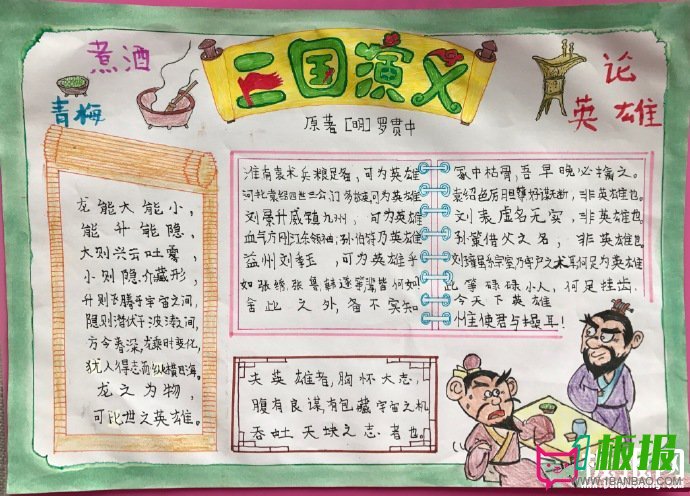 煮酒
青梅
三国演义
原著[明]罗贯中
论
英雄
龙能大能小，
能升能隐，
大则兴云吐雾，
小则隐介藏形，
升则飞腾于宇宙之间，
隐则潜伏于波涛间，
方今春深，龙乘时变化，
犹人得志而纵横四海。
龙之为物，
可比世之英雄。
淮南袁术兵粮足备，可为英雄
河北袁绍四世三公，门多故吏，可为英雄
刘景升威镇九州，可为英雄
血气方刚江东领袖，孙伯符乃英雄
益州刘季玉，可为英雄乎
如张绣，张鲁，韩遂等辈皆何如
舍此之外，备不实知
冢中枯骨，吾早晚必擒之。
袁绍色厉胆薄，好谋无断，非英雄也。
刘表虚名无实，非英雄也
孙策借父之名，非英雄也
刘璋虽系宗室，乃守户之犬耳，何足为英雄
此等碌碌小人，何足挂齿
今天下英雄
惟使君与操耳！
夫英雄者，胸怀大志，
腹有良谋，有包藏宇宙之机
吞吐天地之志者也。
1板报
WWW.1BANBAO.COM